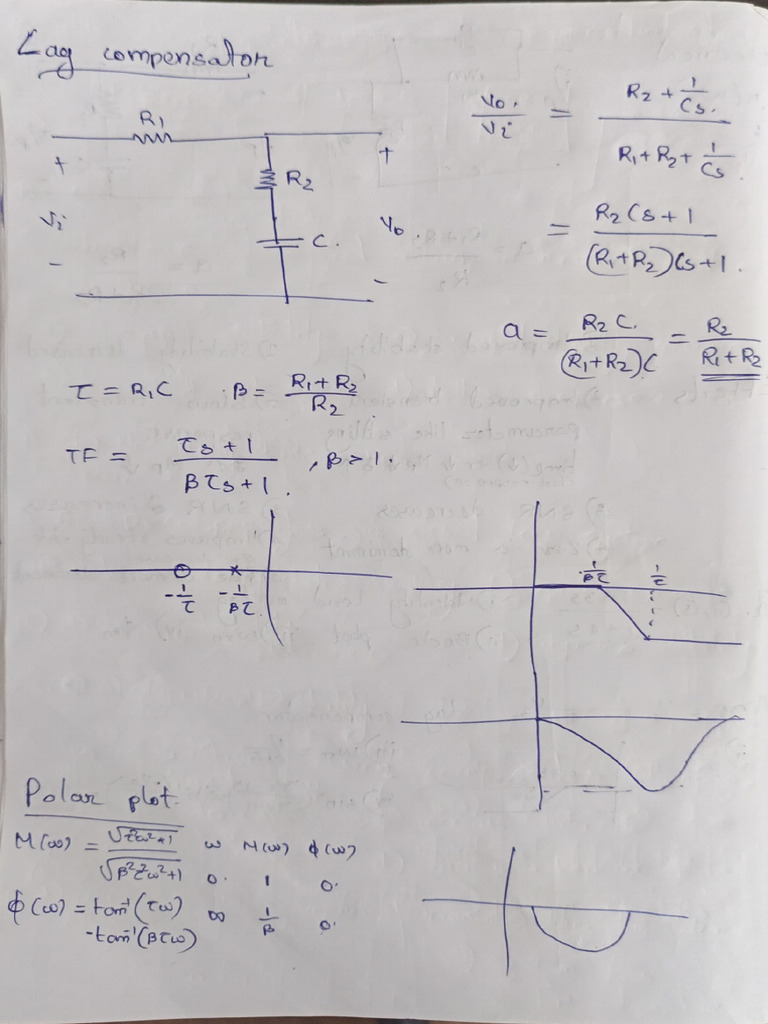 Lag compensator
R₁
+
R₂
C.
Vi
-
+
Vo.
-
Vo. / Vi = (R₂ + 1/Cs.) / (R₁ + R₂ + 1/Cs)
= (R₂Cs + 1) / ((R₁+R₂)Cs + 1).
a = R₂C. / (R₁+R₂)C = R₂ / (R₁+R₂)
τ = R₁C β = (R₁+R₂) / R₂
TF = (τs + 1) / (βτs + 1.) , β > 1.
-1/τ -1/βτ
1/βτ 1/τ
Polar plot.
M(ω) = √(τ²ω²+1) / √(β²τ²ω²+1)
ϕ(ω) = tan⁻¹(τω)
-tan⁻¹(βτω)
ω M(ω) ϕ(ω)
0. 1 0.
∞ 1/β 0.